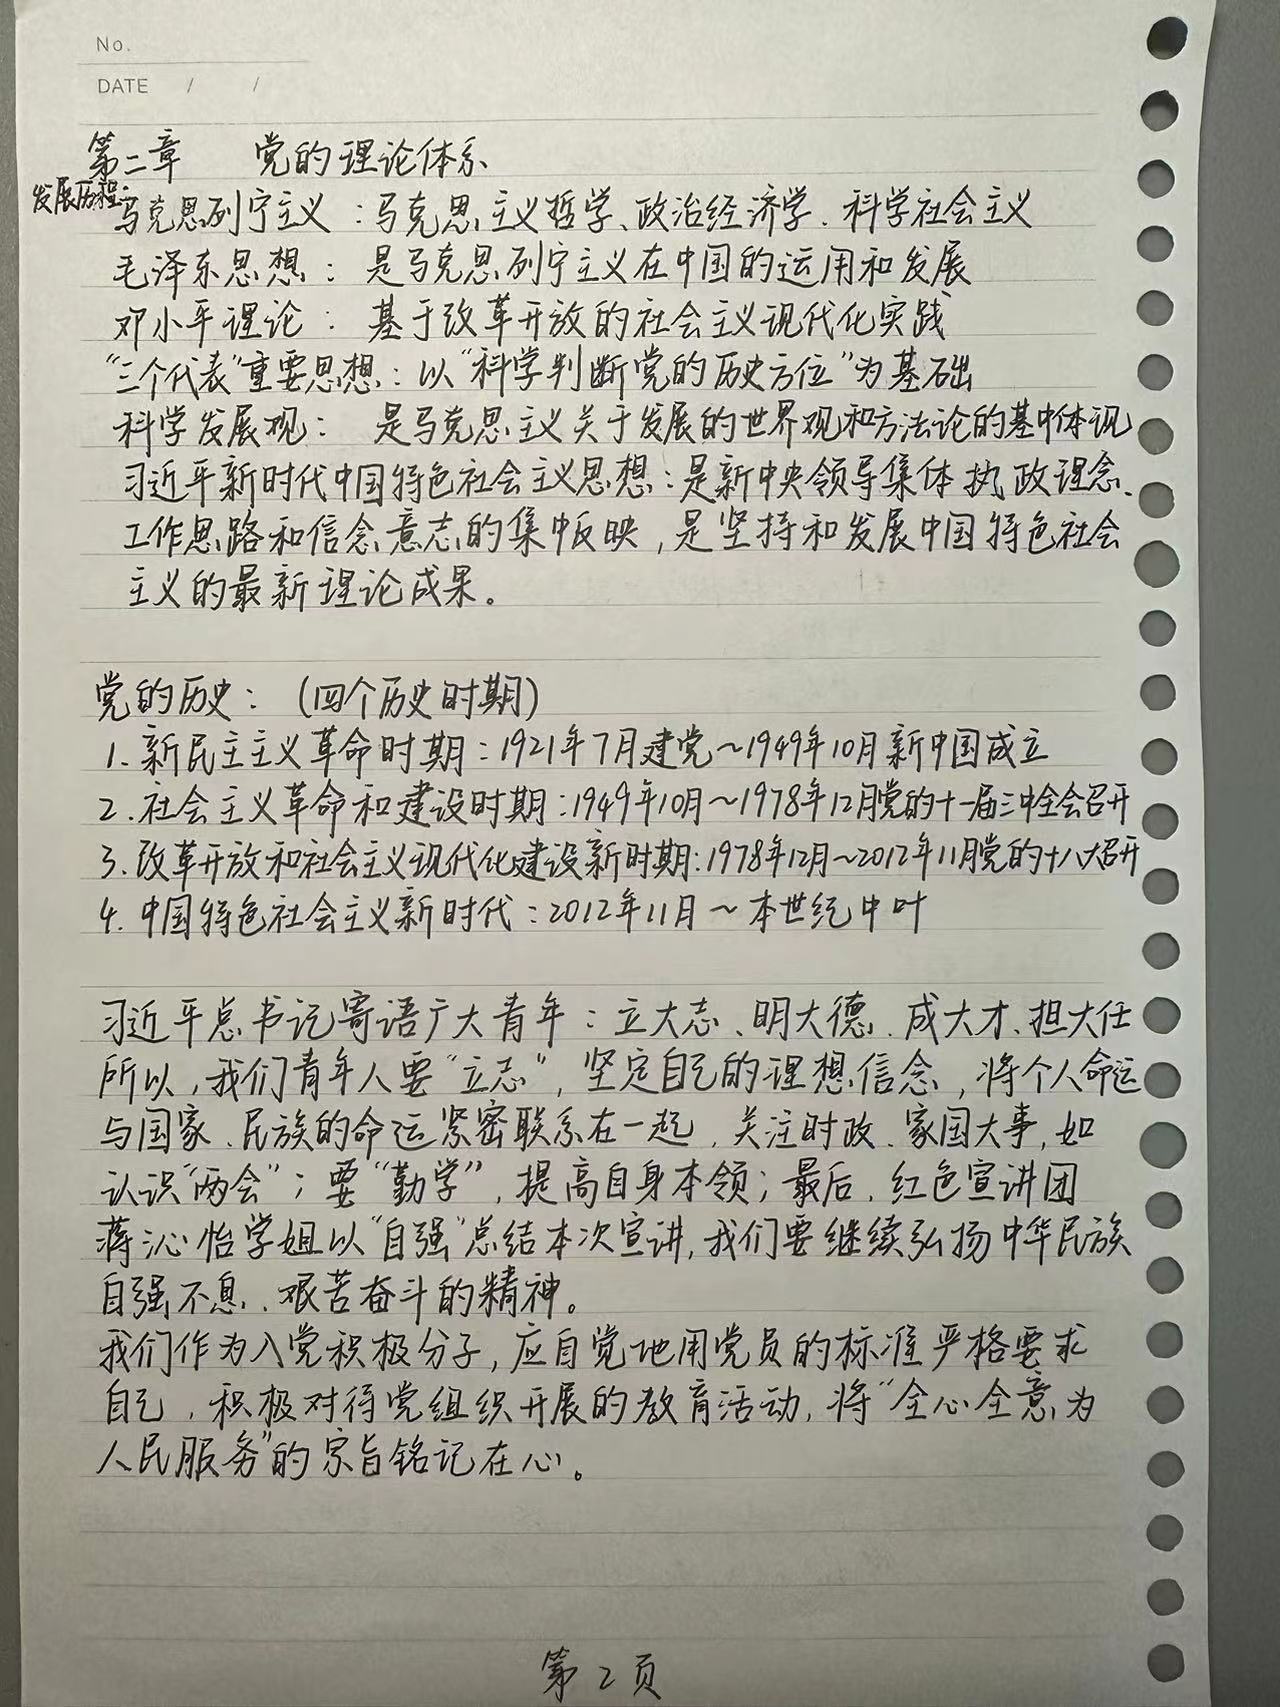 No.
DATE / /
第二章 党的理论体系
发展历程:
马克思列宁主义：马克思主义哲学、政治经济学、科学社会主义
毛泽东思想：是马克思列宁主义在中国的运用和发展
邓小平理论：基于改革开放的社会主义现代化实践
“三个代表”重要思想：以“科学判断党的历史方位”为基础
科学发展观：是马克思主义关于发展的世界观和方法论的集中体现
习近平新时代中国特色社会主义思想：是新中央领导集体执政理念、
工作思路和信念意志的集中反映，是坚持和发展中国特色社会
主义的最新理论成果。
党的历史：（四个历史时期）
1. 新民主主义革命时期：1921年7月建党～1949年10月新中国成立
2. 社会主义革命和建设时期：1949年10月～1978年12月党的十一届三中全会召开
3. 改革开放和社会主义现代化建设新时期：1978年12月～2012年11月党的十八大召开
4. 中国特色社会主义新时代：2012年11月～本世纪中叶
习近平总书记寄语广大青年：立大志、明大德、成大才、担大任
所以，我们青年人要“立志”，坚定自己的理想信念，将个人命运
与国家、民族的命运紧密联系在一起，关注时政、家国大事，如
认识“两会”；要“勤学”，提高自身本领；最后，红色宣讲团
蒋沁怡学姐以“自强”总结本次宣讲，我们要继续弘扬中华民族
自强不息、艰苦奋斗的精神。
我们作为入党积极分子，应自觉地用党员的标准严格要求
自己，积极对待党组织开展的教育活动，将“全心全意为
人民服务”的宗旨铭记在心。
第2页